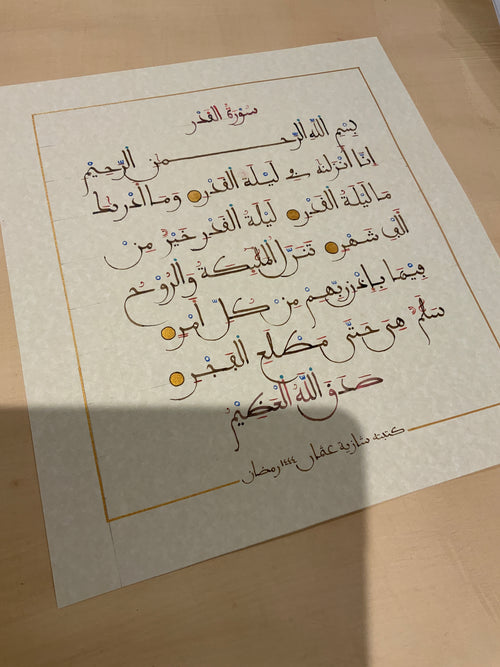 سُورَةُ الْقَدْر
بِسْمِ اللَّهِ الرَّحْمَٰنِ الرَّحِيمِ
إِنَّا أَنزَلْنَٰهُ فِي لَيْلَةِ الْقَدْرِ وَمَا أَدْرَىٰكَ
مَا لَيْلَةُ الْقَدْرِ لَيْلَةُ الْقَدْرِ خَيْرٌ مِنْ
أَلْفِ شَهْرٍ تَنَزَّلُ الْمَلَٰئِكَةُ وَالرُّوحُ
فِيهَا بِإِذْنِ رَبِّهِمْ مِنْ كُلِّ أَمْرٍ
سَلَٰمٌ هِيَ حَتَّىٰ مَطْلَعِ الْفَجْرِ
صَدَقَ اللَّهُ الْعَظِيمُ
كتبته شازية عثمان ١٤٤٤ رمضان